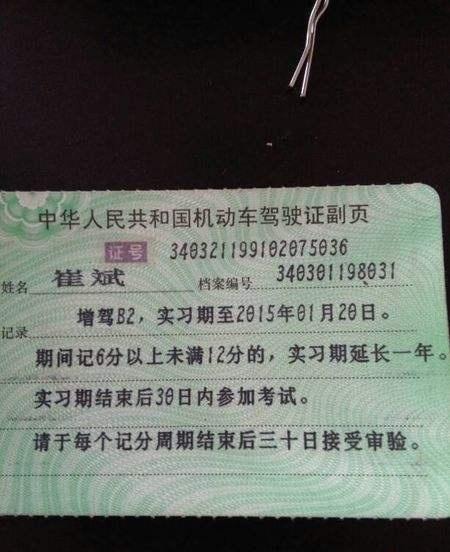 中华人民共和国机动车驾驶证副页
证号 340321199102075036
姓名 崔斌 档案编号 340301198031
记录 增驾B2，实习期至2015年01月20日。
期间记6分以上未满12分的，实习期延长一年。
实习期结束后30日内参加考试。
请于每个记分周期结束后三十日接受审验。